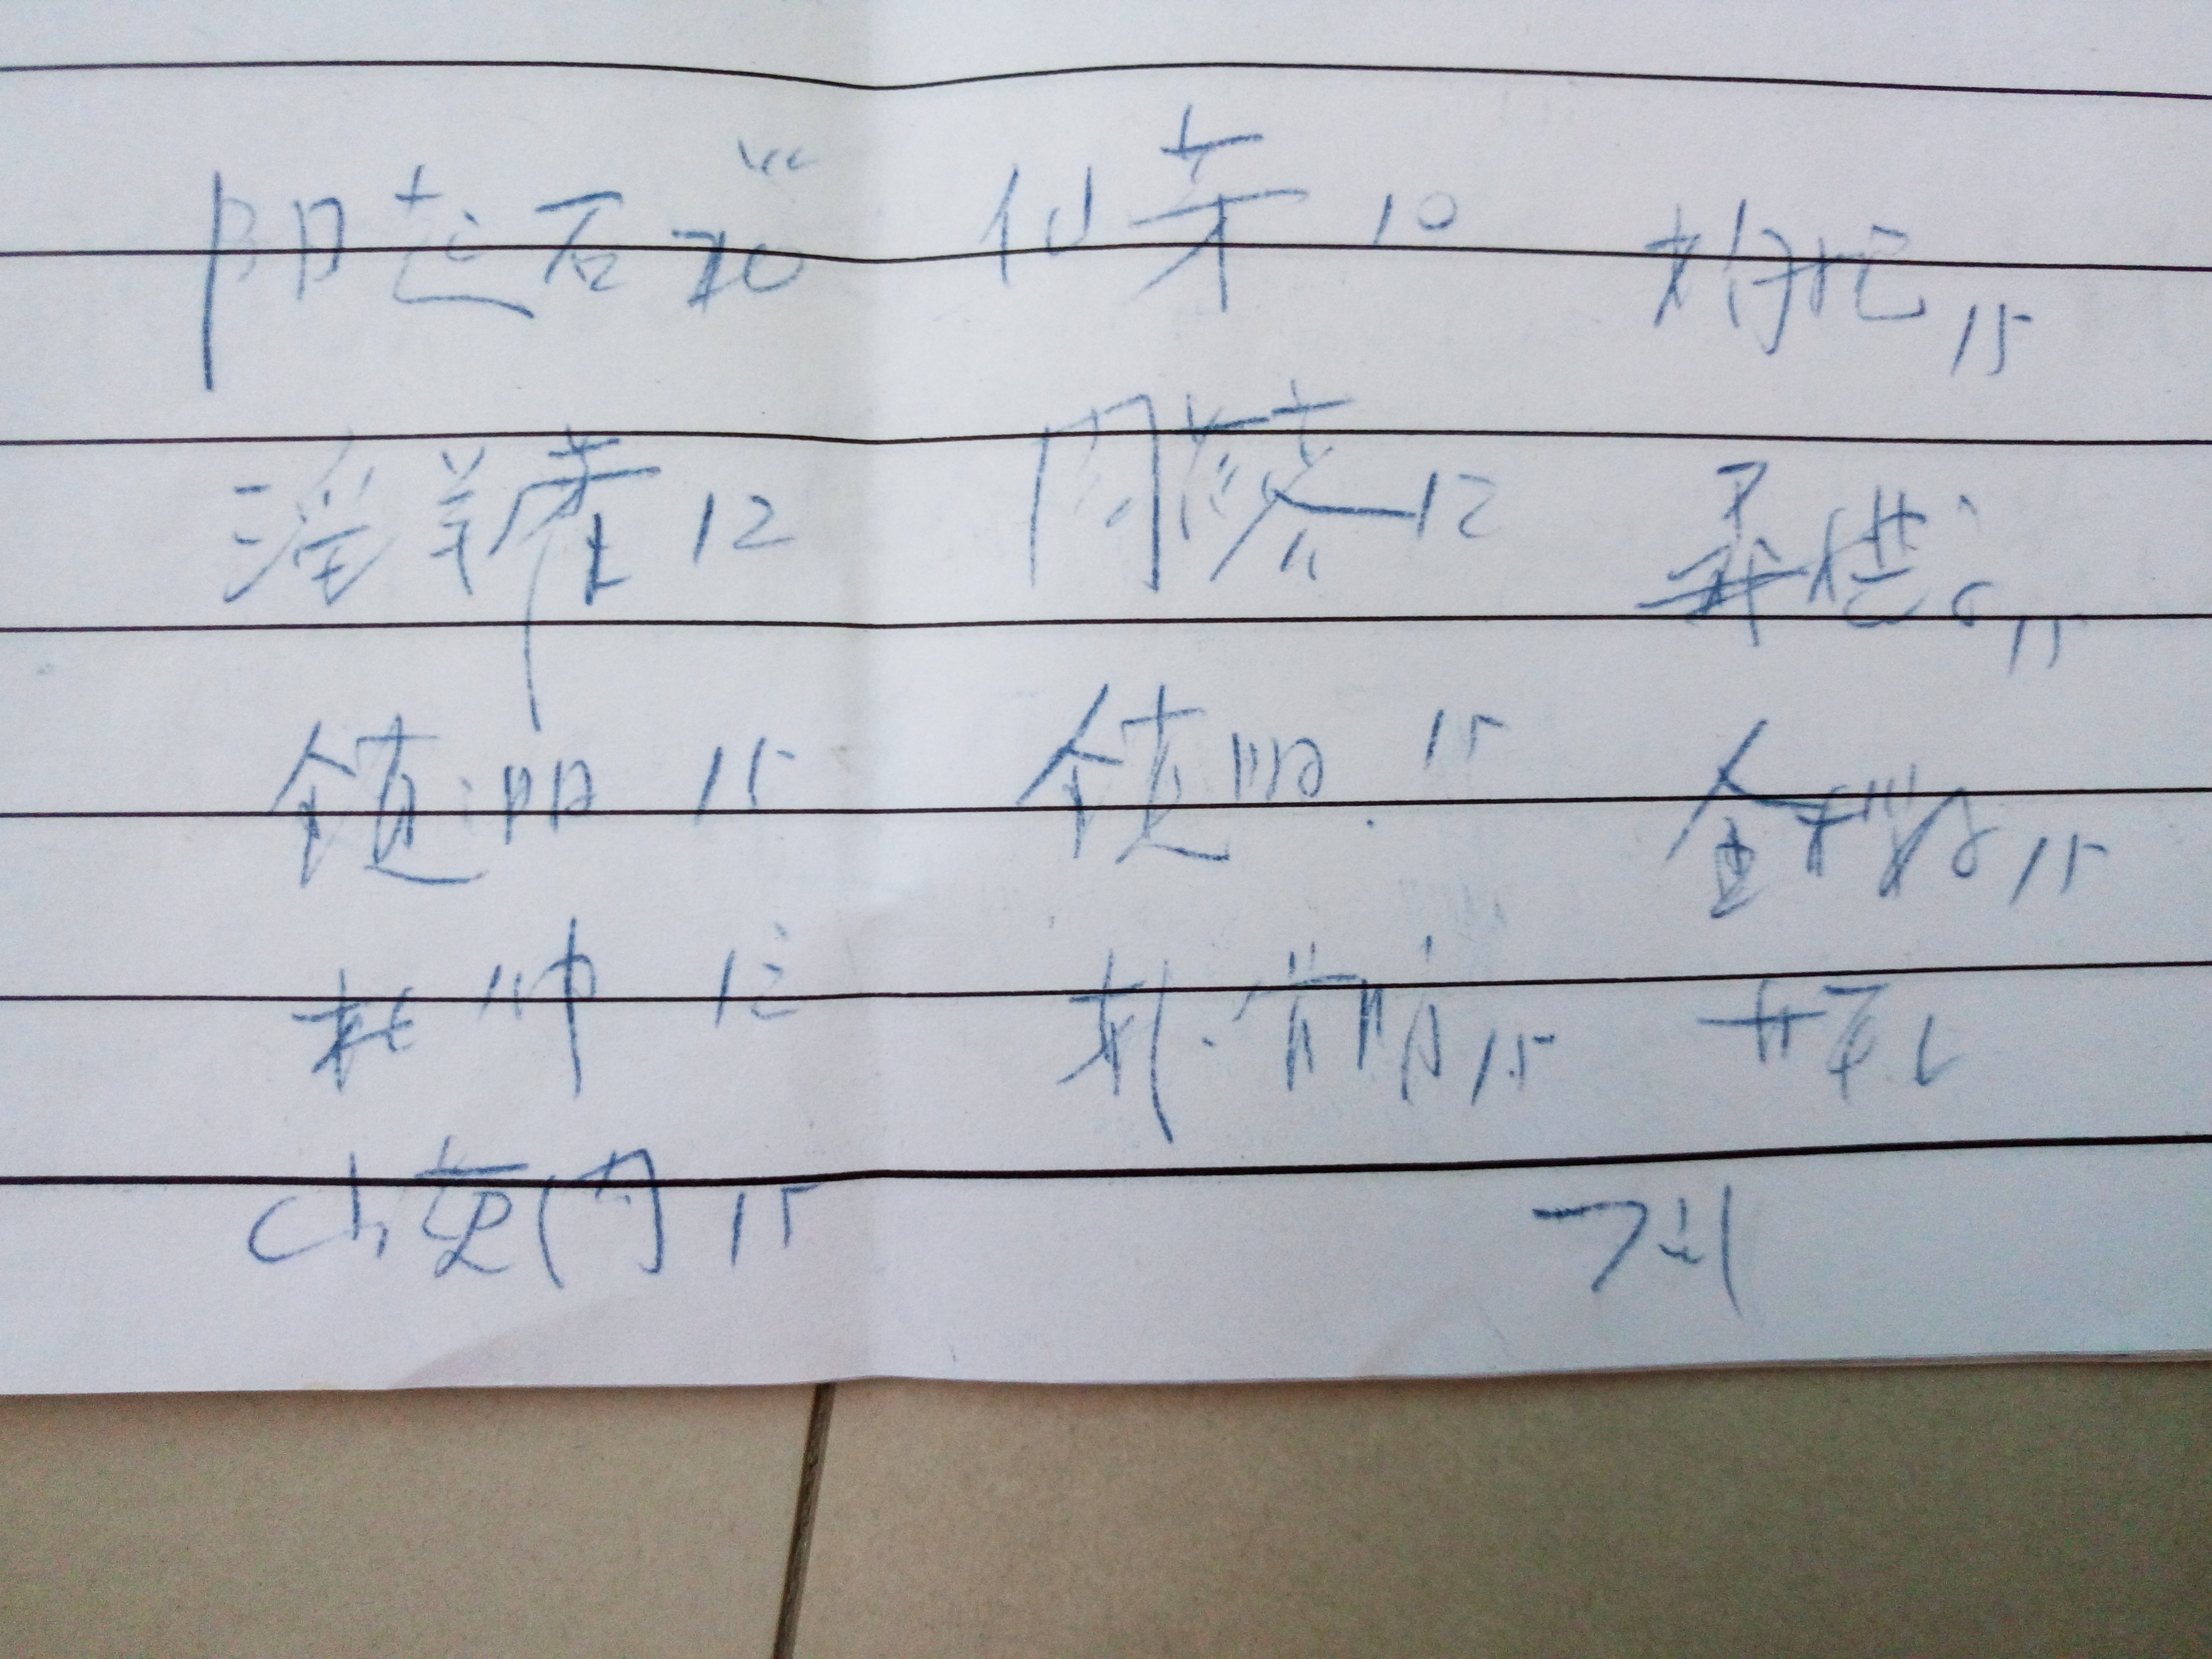 阳起石20 仙茅10 枸杞15
淫羊藿12 肉苁蓉12 桑椹子15
锁阳15 锁阳15 金樱子15
杜仲12 15 甘草6
山萸肉15 7剂